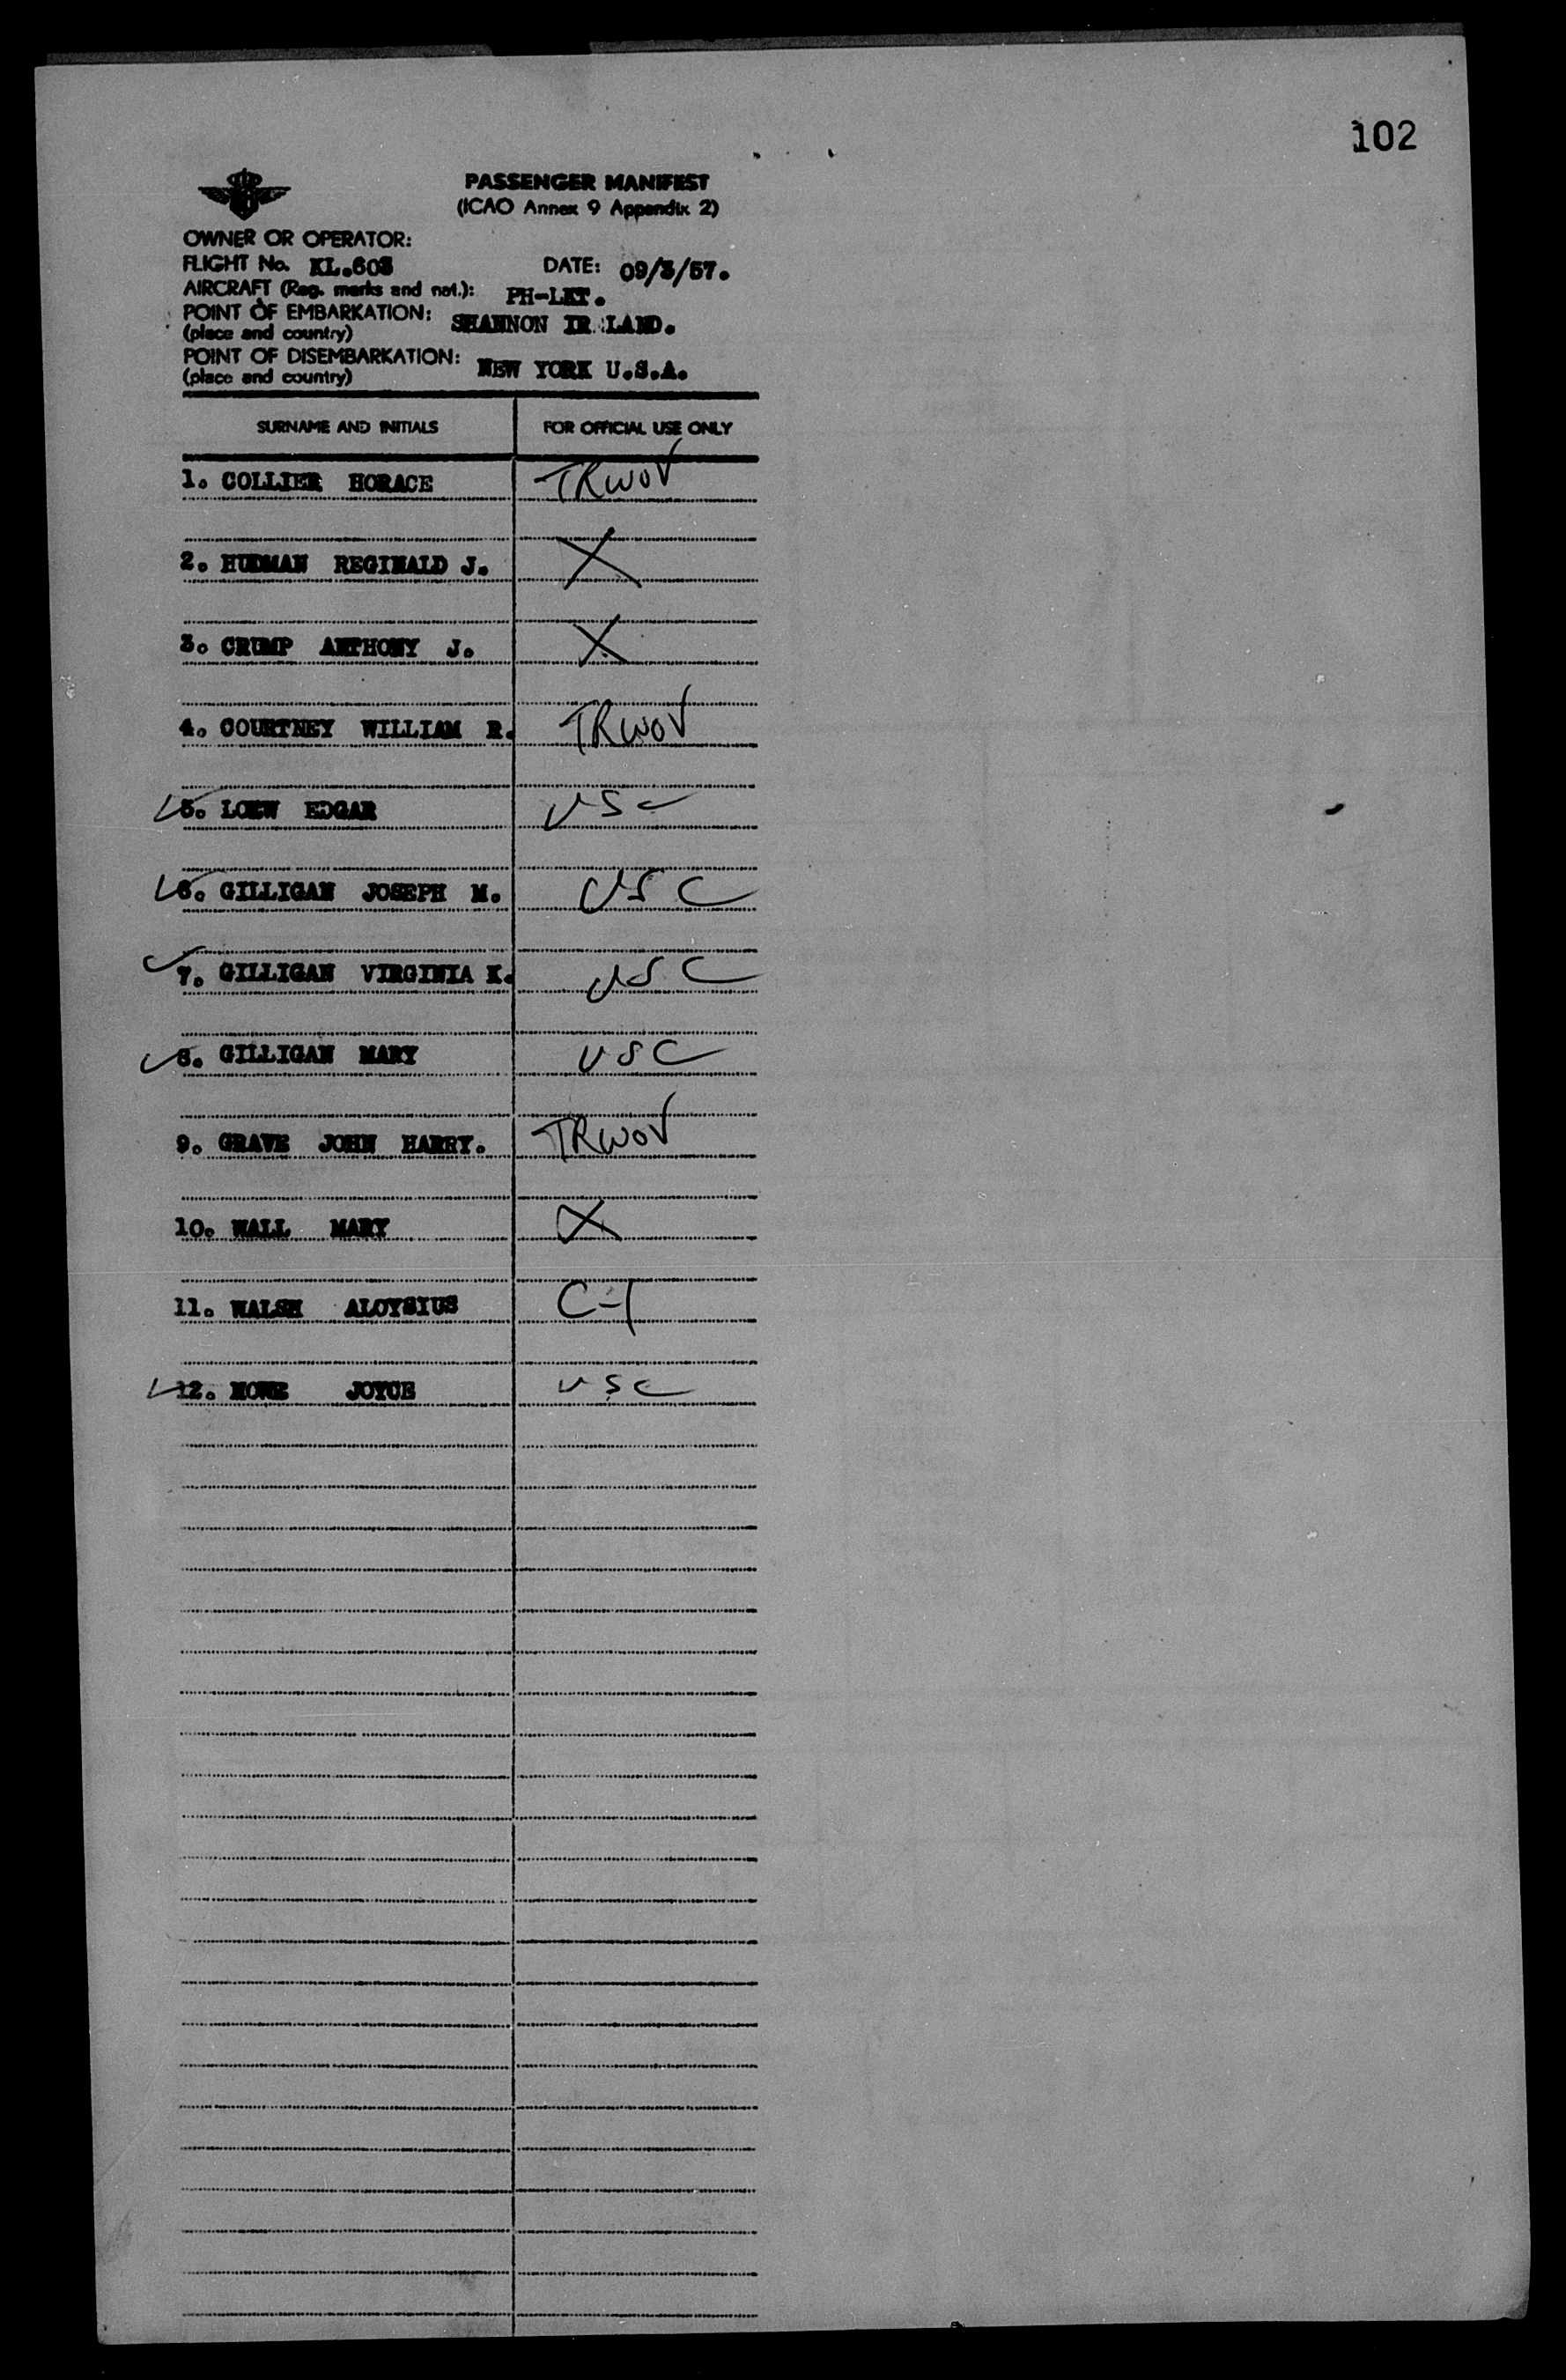 102
PASSENGER MANIFEST
(ICAO Annex 9 Appendix 2)
OWNER OR OPERATOR:
FLIGHT No. KL.603 DATE: 09/3/57.
AIRCRAFT (Reg. marks and nat.): PH-LKT.
POINT OF EMBARKATION: SHANNON IR LAND.
(place and country)
POINT OF DISEMBARKATION: NEW YORK U.S.A.
(place and country)
SURNAME AND INITIALS FOR OFFICIAL USE ONLY
1. COLLIER HORACE TRWOV
2. HUDMAN REGINALD J. X
3. CRUMP ANTHONY J. X
4. COURTNEY WILLIAM R. TRWOV
5. LOEW EDGAR USC
6. GILLIGAN JOSEPH M. USC
7. GILLIGAN VIRGINIA K. USC
8. GILLIGAN MARY USC
9. GRAVE JOHN HARRY. TRWOV
10. WALL MARY X
11. WALSH ALOYSIUS C-1
12. JOYCE USC